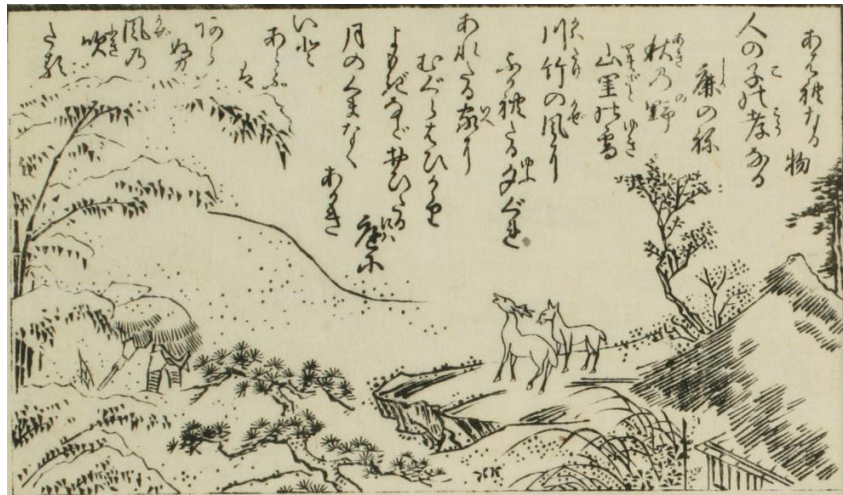 あはれなる物
人の子の孝なる
鹿の祢
秋乃野
山里の雪
川竹の風に
ふかれたる夕ぐれ
あれたる家に
むぐらはひかゝり
よもぎなどおひたる庭に
月のくまなくあかき
いと
あらふ
は
あらぬ
風乃
吹
たる